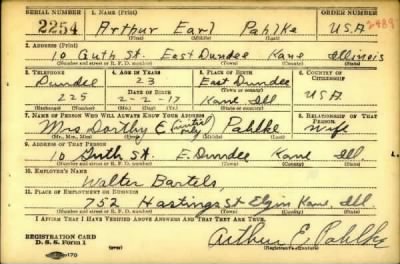 SERIAL NUMBER 1. NAME (Print) ORDER NUMBER
2254 Arthur Earl Pahlke 2489
(First) (Middle) (Last)
2. ADDRESS (Print)
10 Guth St. East Dundee Kane Illinois
(Number and street or R. F. D. number) (Town) (County) (State)
3. TELEPHONE 4. AGE IN YEARS 5. PLACE OF BIRTH 6. COUNTRY OF CITIZENSHIP
Dundee 23 East Dundee
DATE OF BIRTH (Town or county)
225 2-2-17 Kane Ill USA
(Exchange) (Number) (Mo.) (Day) (Yr.) (State or country)
7. NAME OF PERSON WHO WILL ALWAYS KNOW YOUR ADDRESS 8. RELATIONSHIP OF THAT PERSON
Mrs Dorthy E. (initial only) Pahlke wife
(Mr., Mrs., Miss) (First) (Middle) (Last)
9. ADDRESS OF THAT PERSON
10 Guth St. E. Dundee Kane Ill
(Number and street or R. F. D. number) (Town) (County) (State)
10. EMPLOYER'S NAME
Walter Bartels
11. PLACE OF EMPLOYMENT OR BUSINESS
752 Hastings St Elgin Kane, Ill.
(Number and street or R. F. D. number) (Town) (County) (State)
I AFFIRM THAT I HAVE VERIFIED ABOVE ANSWERS AND THAT THEY ARE TRUE.
REGISTRATION CARD
D. S. S. Form 1 Arthur E Pahlke